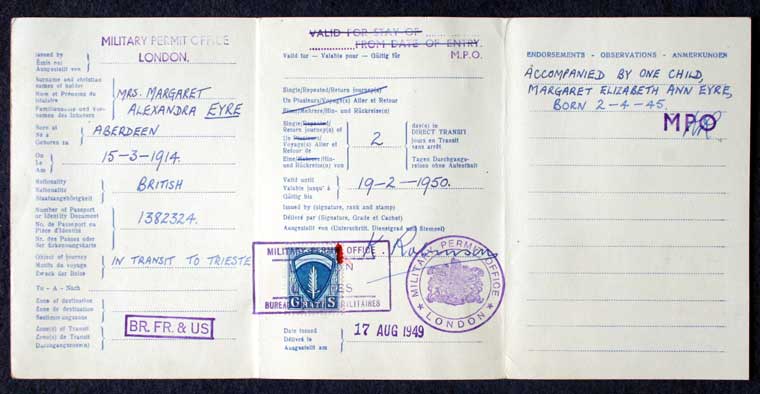 MILITARY PERMIT OFFICE
LONDON.
Issued by
Émis par
Ausgestellt von
Surname and christian
names of holder
Nom et Prénoms du
titulaire
Familienname und Vor-
namen des Inhabers
MRS. MARGARET
ALEXANDRA EYRE
Born at
Né a
Geboren zu
ABERDEEN
On
Le
Am
15-3-1914.
Nationality
Nationalité
Staatsangehörigkeit
BRITISH
Number of Passport
or Identity Document
No. de Passeport ou
Pièce d'Identité
Nr. des Passes oder
der Erkennungskarte
1382324.
Object of journey
Motifs du voyage
Zweck der Reise
IN TRANSIT TO TRIESTE
To - A - Nach
Zone of destination
Zone de destination
Bestimmungszone
Zone(s) of Transit
Zone(s) de Transit
Durchgangszone(n)
BR. FR. & US
VALID FOR STAY OF
FROM DATE OF ENTRY.
Valid for - Valable pour - Gültig für
M.P.O.
Single/Repeated/Return journey(s)
Un Plusieurs/Voyage(s) Aller et Retour
Eine/Mehrere/Hin- und Rückreise(n)
Single/Repeated/
Return journey(s) of
Un Plusieurs/
Voyage(s) Aller et
Retour de
Eine/Mehrere/Hin-
und Rückreise(n) von
2
day(s) in
DIRECT TRANSIT
jours en Transit
sans arrêt
Tagen Durchgangs-
reisen ohne Aufenthalt
Valid until
Valable jusqu' à
Gültig bis
19-2-1950.
Issued by (signature, rank and stamp)
Délivré par (Signature, Grade et Cachet)
Ausgestellt von (Unterschrift, Dienstgrad und Stempel)
MILITARY PERMIT OFFICE
BUREAU MILITAIRES
G S
MILITARY PERMIT OFFICE
LONDON
Date Issued
Délivré le
Ausgestellt am
17 AUG 1949
ENDORSEMENTS - OBSERVATIONS - ANMERKUNGEN
ACCOMPANIED BY ONE CHILD,
MARGARET ELIZABETH ANN EYRE,
BORN 2-4-45.
MPO